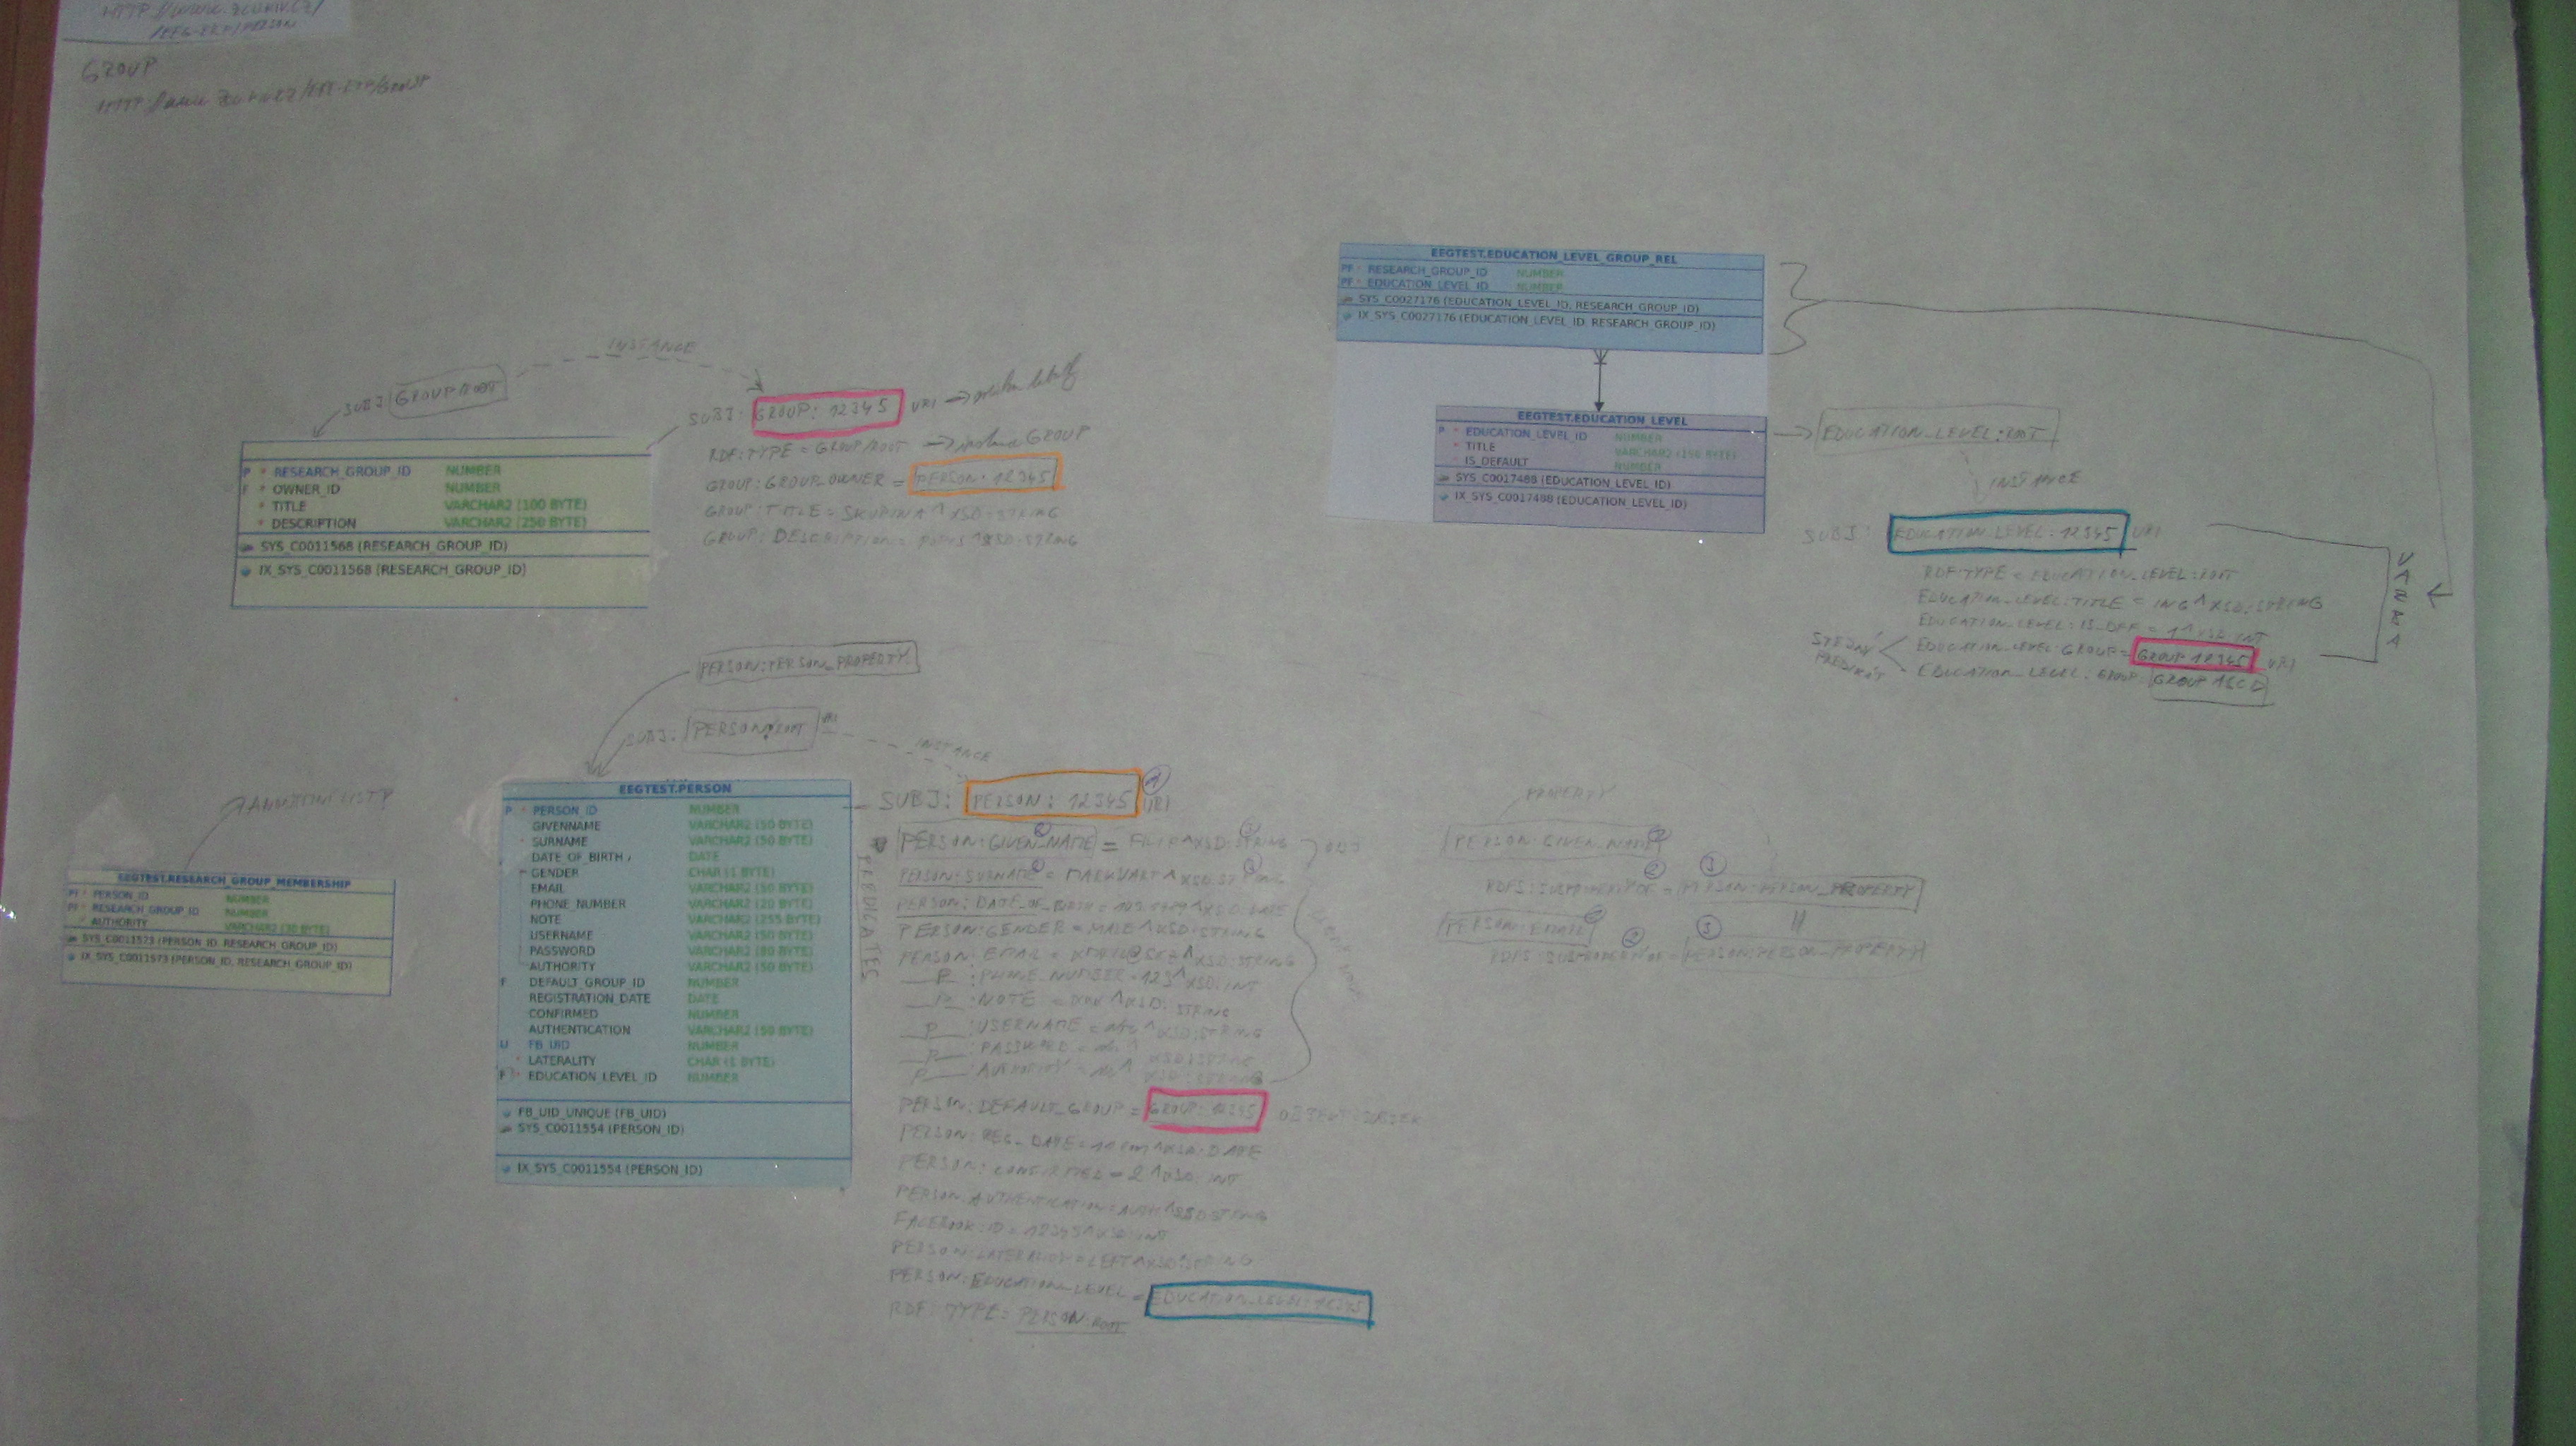 GROUP
INSTANCE
SUBJ: GROUP:ROOT
SUBJ: GROUP: 12345 URI
RDF:TYPE = GROUP:ROOT → GROUP
GROUP:GROUP_OWNER = PERSON: 12345
GROUP:TITLE = SKUPINA^XSD:STRING
GROUP: DESCRIPTION = POPIS^XSD:STRING
P * RESEARCH_GROUP_ID NUMBER
F * OWNER_ID NUMBER
* TITLE VARCHAR2 (100 BYTE)
* DESCRIPTION VARCHAR2 (250 BYTE)
SYS_C0011568 (RESEARCH_GROUP_ID)
IX_SYS_C0011568 (RESEARCH_GROUP_ID)
EEGTEST.EDUCATION_LEVEL_GROUP_REL
PF * RESEARCH_GROUP_ID NUMBER
PF * EDUCATION_LEVEL_ID NUMBER
SYS_C0027176 (EDUCATION_LEVEL_ID, RESEARCH_GROUP_ID)
IX_SYS_C0027176 (EDUCATION_LEVEL_ID, RESEARCH_GROUP_ID)
EEGTEST.EDUCATION_LEVEL
P * EDUCATION_LEVEL_ID NUMBER
* TITLE VARCHAR2 (150 BYTE)
* IS_DEFAULT NUMBER
SYS_C0017488 (EDUCATION_LEVEL_ID)
IX_SYS_C0017488 (EDUCATION_LEVEL_ID)
EDUCATION_LEVEL:ROOT
INSTANCE
SUBJ: EDUCATION_LEVEL:12345 URI
RDF:TYPE = EDUCATION_LEVEL:ROOT
EDUCATION_LEVEL:TITLE = ING^XSD:STRING
EDUCATION_LEVEL:IS_DEF = 1^XSD:INT
EDUCATION_LEVEL:GROUP = GROUP 12345 URI
EDUCATION_LEVEL:GROUP GROUP ABCD
STEJNÝ PREDIKÁT
VAZBA
PERSON:PERSON_PROPERTY
SUBJ: PERSON:ROOT
INSTANCE
EEGTEST.RESEARCH_GROUP_MEMBERSHIP
PF * PERSON_ID NUMBER
PF * RESEARCH_GROUP_ID NUMBER
* AUTHORITY VARCHAR2 (30 BYTE)
SYS_C0011573 (PERSON_ID, RESEARCH_GROUP_ID)
IX_SYS_C0011573 (PERSON_ID, RESEARCH_GROUP_ID)
EEGTEST.PERSON
P * PERSON_ID NUMBER
GIVENNAME VARCHAR2 (50 BYTE)
* SURNAME VARCHAR2 (50 BYTE)
DATE_OF_BIRTH DATE
* GENDER CHAR (1 BYTE)
EMAIL VARCHAR2 (50 BYTE)
PHONE_NUMBER VARCHAR2 (20 BYTE)
NOTE VARCHAR2 (255 BYTE)
USERNAME VARCHAR2 (50 BYTE)
PASSWORD VARCHAR2 (80 BYTE)
AUTHORITY VARCHAR2 (50 BYTE)
F DEFAULT_GROUP_ID NUMBER
REGISTRATION_DATE DATE
CONFIRMED NUMBER
AUTHENTICATION VARCHAR2 (50 BYTE)
U FB_UID NUMBER
* LATERALITY CHAR (1 BYTE)
F * EDUCATION_LEVEL_ID NUMBER
FB_UID_UNIQUE (FB_UID)
SYS_C0011554 (PERSON_ID)
IX_SYS_C0011554 (PERSON_ID)
PREDICATES
SUBJ: PERSON: 12345 URI
PERSON:GIVEN_NAME = FILIP^XSD:STRING OBJ
PERSON:SURNAME = MARKVART^XSD:STRING
PERSON: DATE_OF_BIRTH = ^XSD:DATE
PERSON:GENDER = MALE^XSD:STRING
PERSON: EMAIL = ^XSD:STRING
P : PHONE_NUMBER = 123^XSD:INT
P : NOTE = ^XSD:STRING
P : USERNAME = ^XSD:STRING
P : PASSWORD = ^XSD:STRING
P : AUTHORITY = ^XSD:STRING
PERSON: DEFAULT_GROUP = GROUP: 12345
PERSON: REG_DATE = ^XSD:DATE
PERSON: CONFIRMED = 2^XSD:INT
PERSON:AUTHENTICATION = AUTH^XSD:STRING
FACEBOOK:ID = 12345^XSD:INT
PERSON:LATERALITY = LEFT^XSD:STRING
PERSON:EDUCATION_LEVEL = EDUCATION_LEVEL:12345
RDF:TYPE = PERSON:ROOT
PROPERTY
PERSON:GIVEN_NAME
RDFS:SUBPROPERTYOF = PERSON:PERSON_PROPERTY
PERSON:EMAIL
RDFS:SUBPROPERTYOF = PERSON:PERSON_PROPERTY